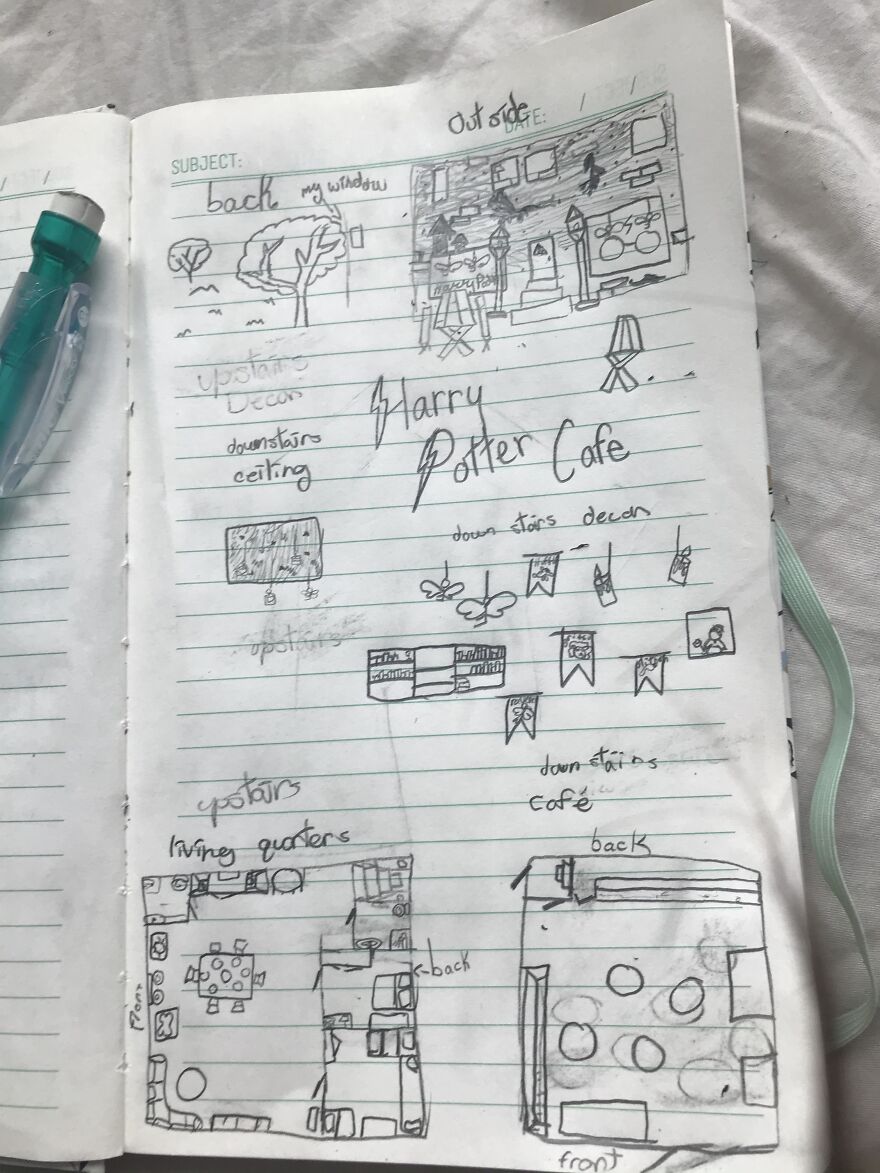 Outside
DATE: / /
SUBJECT:
back
my window
Harry Pott
upstairs
Decor
Harry
Potter Cafe
downstairs
ceiling
down stairs decor
upstairs
upstairs
living quarters
down stairs
café
back
<-back
front
front